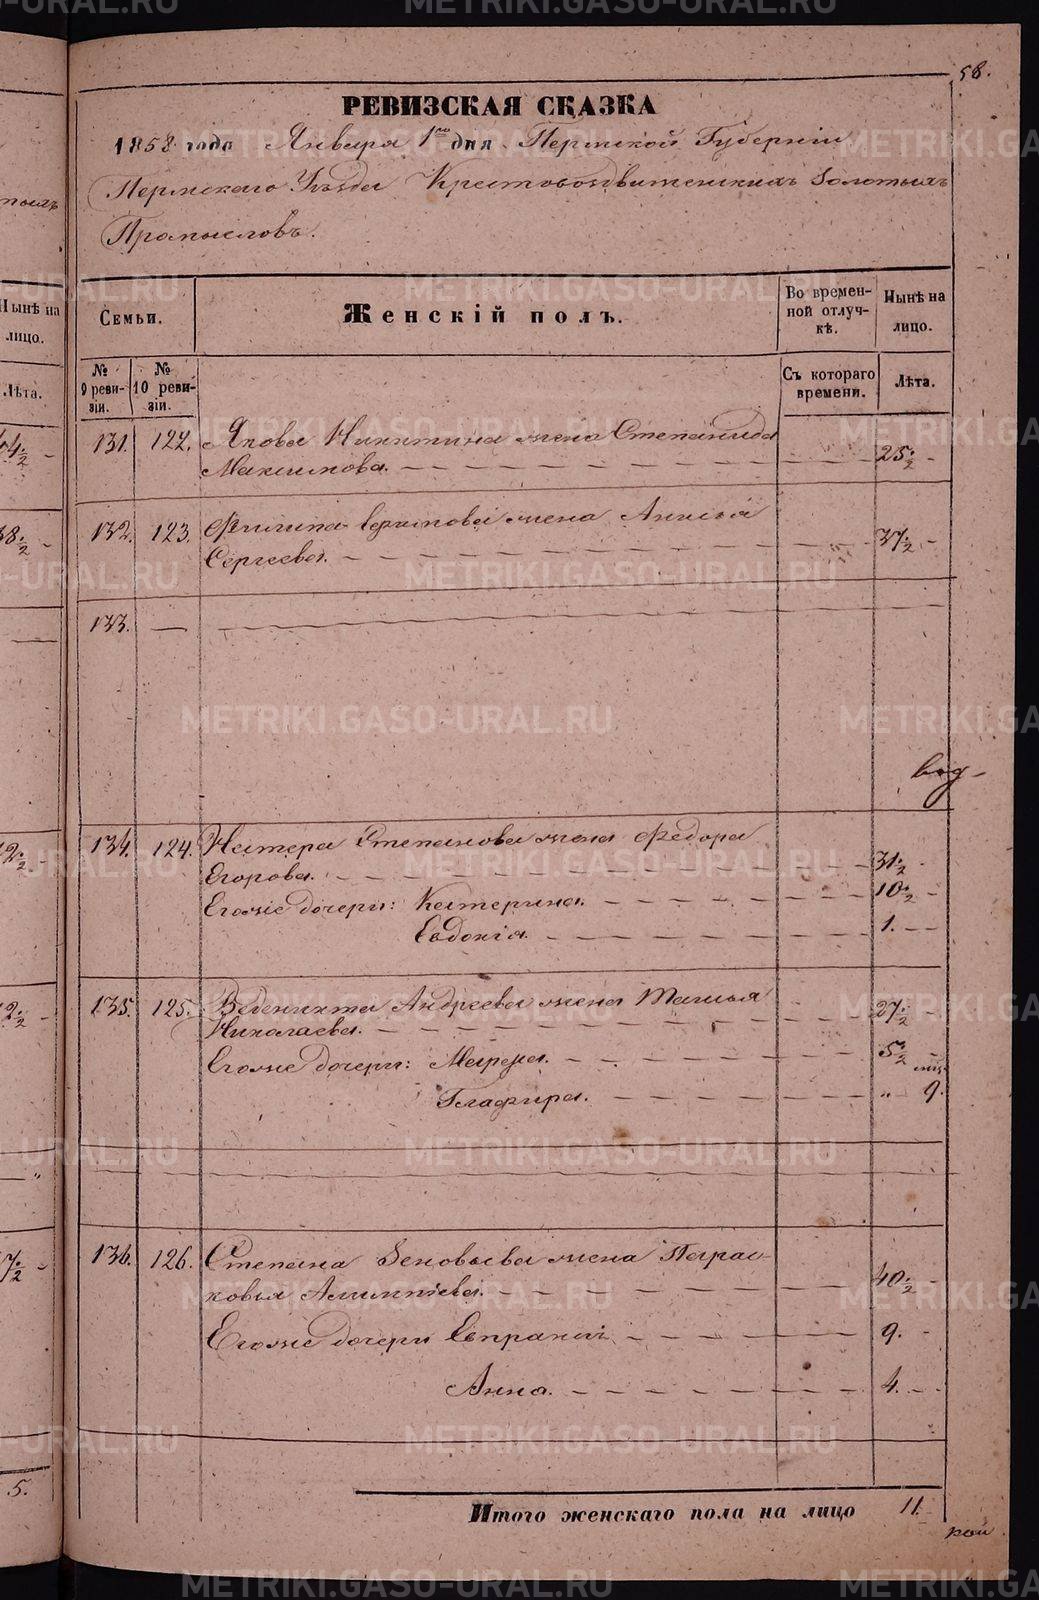 METRIKI.GASO-URAL.RU
58.
РЕВИЗСКАЯ СКАЗКА
1858 года Января 1го дня Пермской Губернiи
Пермскаго Уѣзда Крестовоздвиженскихъ Золотыхъ
Промысловъ.
Нынѣ на лицо.
Лѣта.
Семьи.
Женскiй полъ.
Во времен-
ной отлуч-
кѣ.
Нынѣ на
лицо.
№ 9 реви-
зiи.
№ 10 реви-
зiи.
Съ котораго
времени.
Лѣта.
131. 122. Якова Никитина жена Степанида
Максимова. 25½
132. 123. Филипа жена Анисья
Сергеева. 37½
133. —
134. 124. Нестера Степанова жена Федора
Егорова. 31½
Егоже дочери: Катерина. 10½
Евдокiя. 1.
135. 125. Веденихта Андреева жена Татьяна
Николаева. 27½
Егоже дочери: Мавра. 5½
Глафира. „ 9.
136. 126. Степана Зеновьева жена Парас-
ковья Алимпiева. 40½
Егоже дочери 9.
Анна. 4.
Итого женскаго пола на лицо 11.